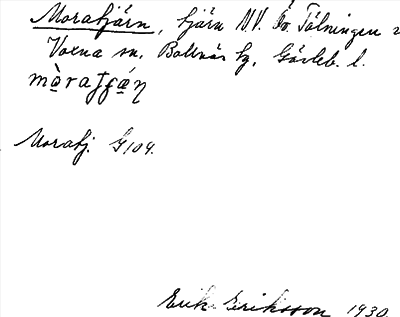 Moratjärn, tjärn N.V. Öv. Tälningen i
Voxna sn, Bollnäs tg, Gävleb. l.
Moratj. G104.
Erik Eriksson 1930.